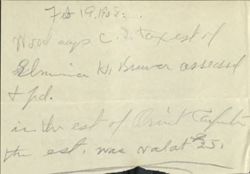 Feb 19, 1905.
Wood says C. I. tax est of
Elmina H. Brewer assessed
& pd.
in the est of Orin
the est. was val at $25.